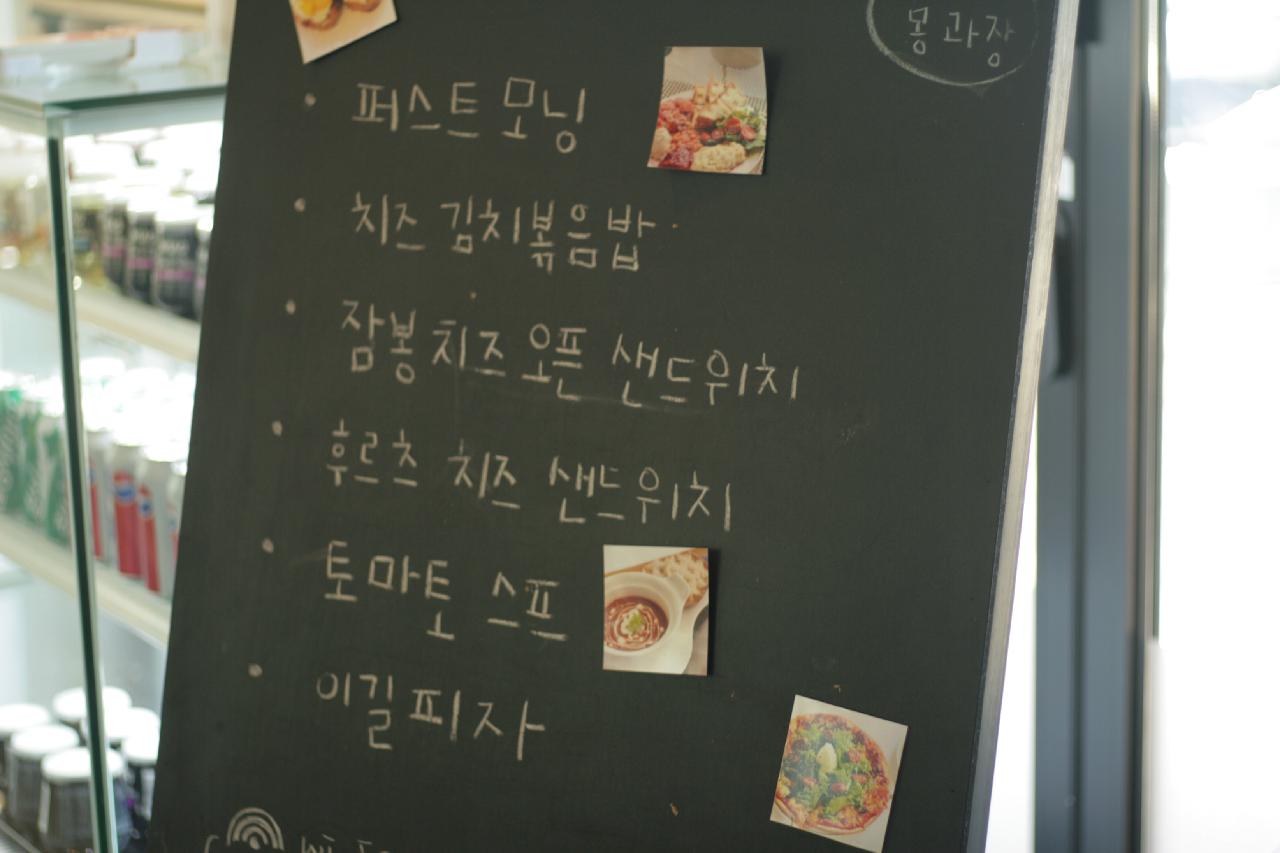 몽과장
퍼스트 모닝
치즈 김치볶음밥
잠봉치즈 오픈 샌드위치
후르츠 치즈 샌드위치
토마토 스프
이길피자